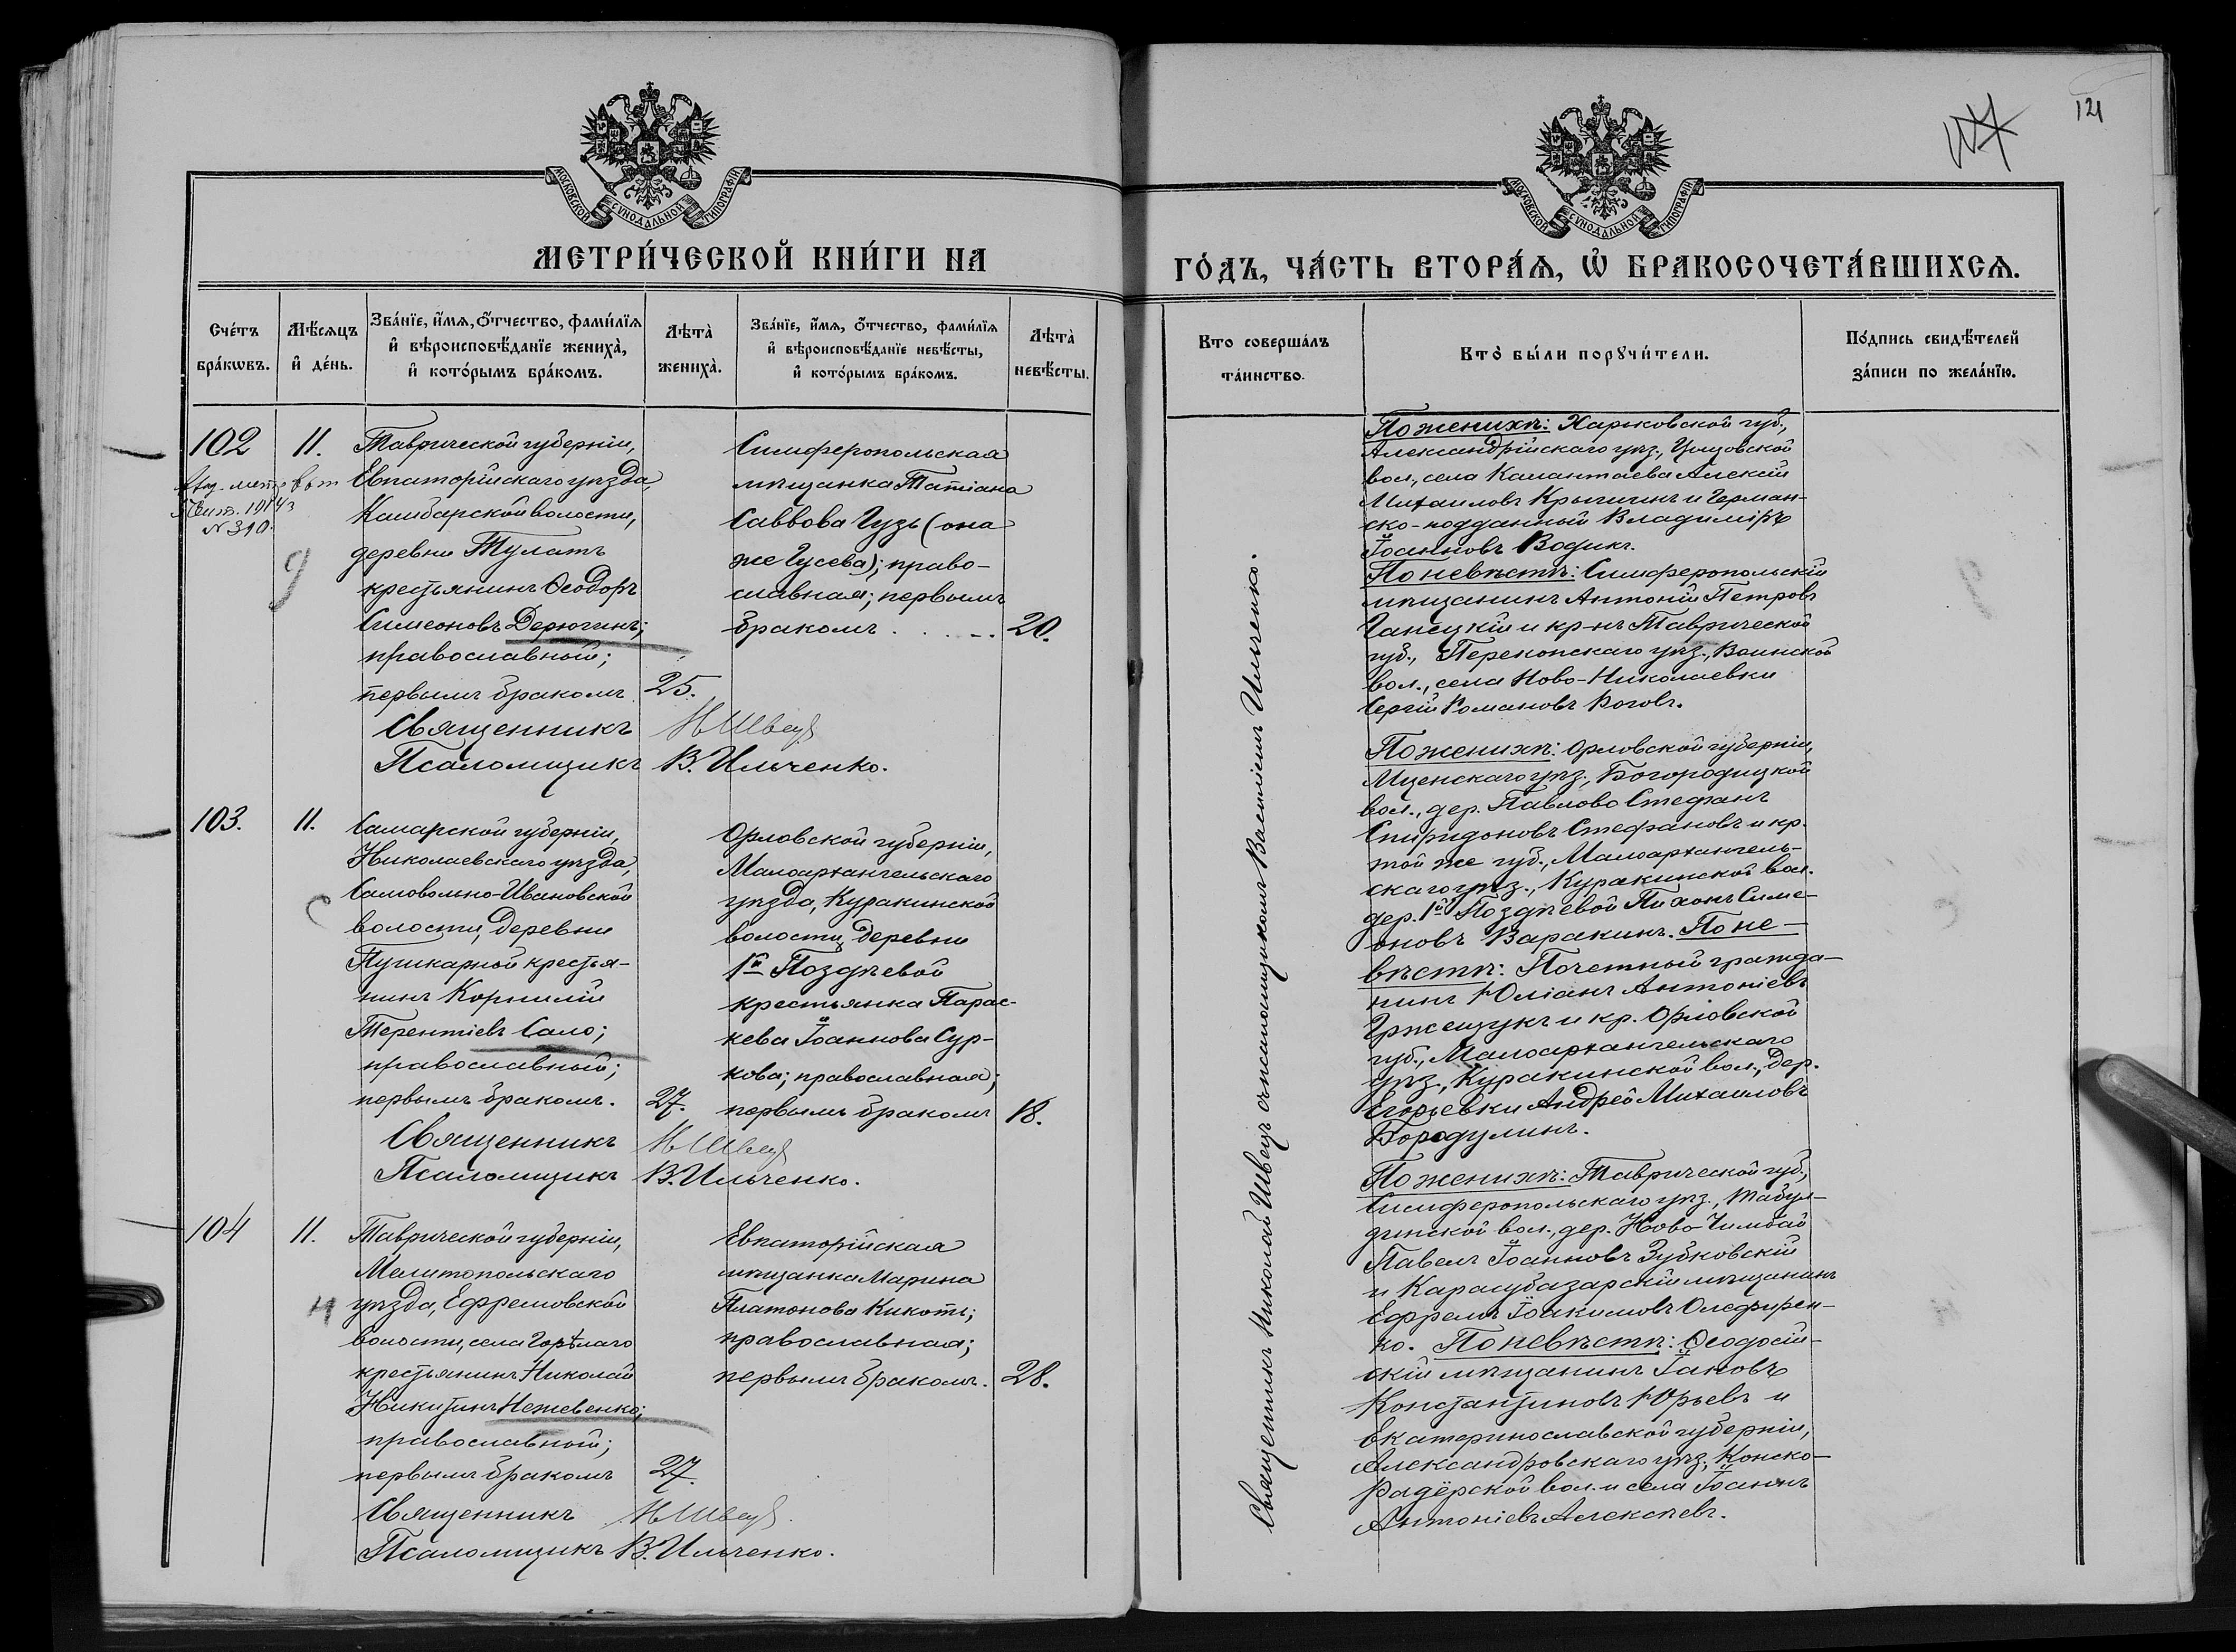 121
МОСКОВСКОЙ СѴНОДАЛЬНОЙ ТИПОГРАФІИ
МЕТРИ́ЧЕСКОЙ КНИ́ГИ НА
Сче́тъ бра́кѡвъ.
Мѣ́сяцъ и҆ де́нь.
Зва́нїе, и҆́мѧ, ѻ҆́тчество, фами́лїѧ
и҆ вѣроисповѣ́данїе жениха̀,
и҆ кото́рымъ бра́комъ.
Лѣта̀ жениха̀.
Зва́нїе, и҆́мѧ, ѻ҆́тчество, фами́лїѧ
и҆ вѣроисповѣ́данїе невѣ́сты,
и҆ кото́рымъ бра́комъ.
Лѣта̀ невѣ́сты.
102
11.
1914
№ 310.
Таврической губерніи,
Евпаторійскаго уѣзда,
Камбарской волости,
деревни Тулатъ
крестьянинъ Ѳеодоръ
Симеоновъ Дерюгинъ;
православный;
первымъ бракомъ
25.
Симферопольская
мѣщанка Татіана
Саввова Гузь (она
же Гусева); право-
славная; первымъ
бракомъ . . . . .
20.
Священникъ Н Швецъ
Псаломщикъ В. Ильченко.
103.
11.
Самарской губерніи,
Николаевскаго уѣзда,
Самовольно-Ивановской
волости, деревни
Пушкарной крестья-
нинъ Корнилій
Терентіевъ Сало;
православный;
первымъ бракомъ.
27.
Орловской губерніи,
Малоархангельскаго
уѣзда, Куракинской
волости, деревни
1й Поздѣевой
крестьянка Парас-
кева Іоаннова Сур-
кова; православная;
первымъ бракомъ
18.
Священникъ Н Швецъ
Псаломщикъ В. Ильченко.
104
11.
Таврической губерніи,
Мелитопольскаго
уѣзда, Ефремовской
волости, села Горѣлаго
крестьянинъ Николай
Никитинъ Нежевенко;
православный;
первымъ бракомъ
27.
Евпаторійская
мѣщанка Марина
Платонова Кикоть;
православная;
первымъ бракомъ.
28.
Священникъ Н Швецъ.
Псаломщикъ В. Ильченко.
МОСКОВСКОЙ СѴНОДАЛЬНОЙ ТИПОГРАФІИ
ГО́ДЪ, ЧА́СТЬ ВТОРА́Ѧ, Ѽ БРАКОСОЧЕТА́ВШИХСѦ.
Кто соверша́лъ та́инство.
Кто̀ бы́ли порꙋчи́тели.
По́дпись свидѣ́телей за́писи по жела́нїю.
Священникъ Николай Швецъ съ псаломщикомъ Василіемъ Ильченко.
По женихѣ: Харьковской губ.,
Александрійскаго уѣз.,
вол., села Калантаева Алексій
Михаиловъ Крыгинъ и Герман-
ско-подданный Владиміръ
Іоанновъ Водикъ.
По невѣстѣ: Симферопольскій
мѣщанинъ Антоній Петровъ
Ганецкій и кр-нъ Таврической
губ., Перекопскаго уѣз., Воинской
вол., села Ново-Николаевки
Сергій Романовъ Коговъ.
По женихѣ: Орловской губерніи,
Мценскаго уѣз., Богородицкой
вол., дер. Павлово Стефанъ
Спиридоновъ Стефановъ и кр.
той же губ., Малоархангель-
скаго уѣз., Куракинской вол.
дер. 1й Поздѣевой Тихонъ Симе-
оновъ Варакинъ. По не-
вѣстѣ: Почетный гражда-
нинъ Юліанъ Антоніевъ
Гржещукъ и кр. Орловской
губ., Малоархангельскаго
уѣз., Куракинской вол., дер.
Егорьевки Андрей Михаиловъ
Бородулинъ.
По женихѣ: Таврической губ.,
Симферопольскаго уѣз., Табул-
динской вол., дер. Ново-Чимбай
Павелъ Іоанновъ Зубковскій
и Карасубазарскій мѣщанинъ
Ефремъ Іоакимовъ Олефирен-
ко. По невѣстѣ: Ѳеодосій-
скій мѣщанинъ Іаковъ
Константиновъ Юрьевъ и
Екатеринославской губерніи,
Александровскаго уѣз., Конско-
Раздёрской вол. и села Іоаннъ
Антоніевъ Алексѣевъ.